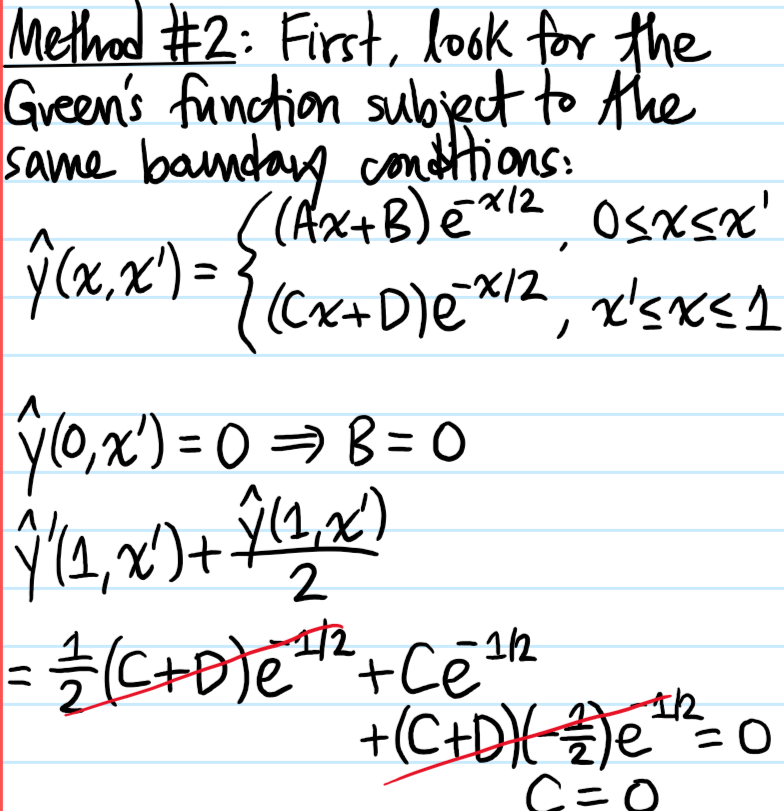 Method #2: First, look for the
Green's function subject to the
same boundary conditions:
ŷ(x,x') = { (Ax+B)e^{-x/2}, 0≤x≤x'
(Cx+D)e^{-x/2}, x'≤x≤1
ŷ(0,x') = 0 ⇒ B = 0
ŷ'(1,x') + ŷ(1,x')/2
= 1/2 (C+D)e^{-1/2} + Ce^{-1/2}
+(C+D)(-1/2)e^{-1/2} = 0
C = 0